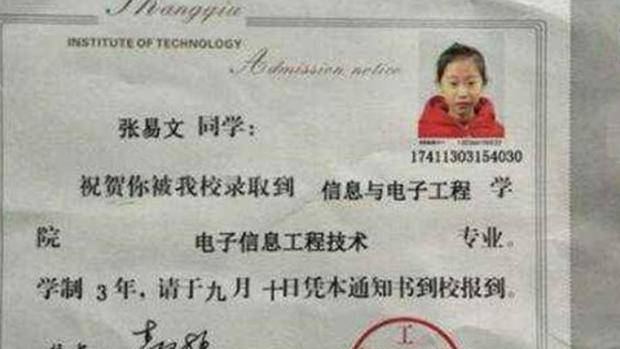 Shangqiu
INSTITUTE OF TECHNOLOGY
Admission notice
张易文 同学：
17411303154030
祝贺你被我校录取到 信息与电子工程 学
院 电子信息工程技术 专业。
学制 3 年，请于九月 十日凭本通知书到校报到。
工